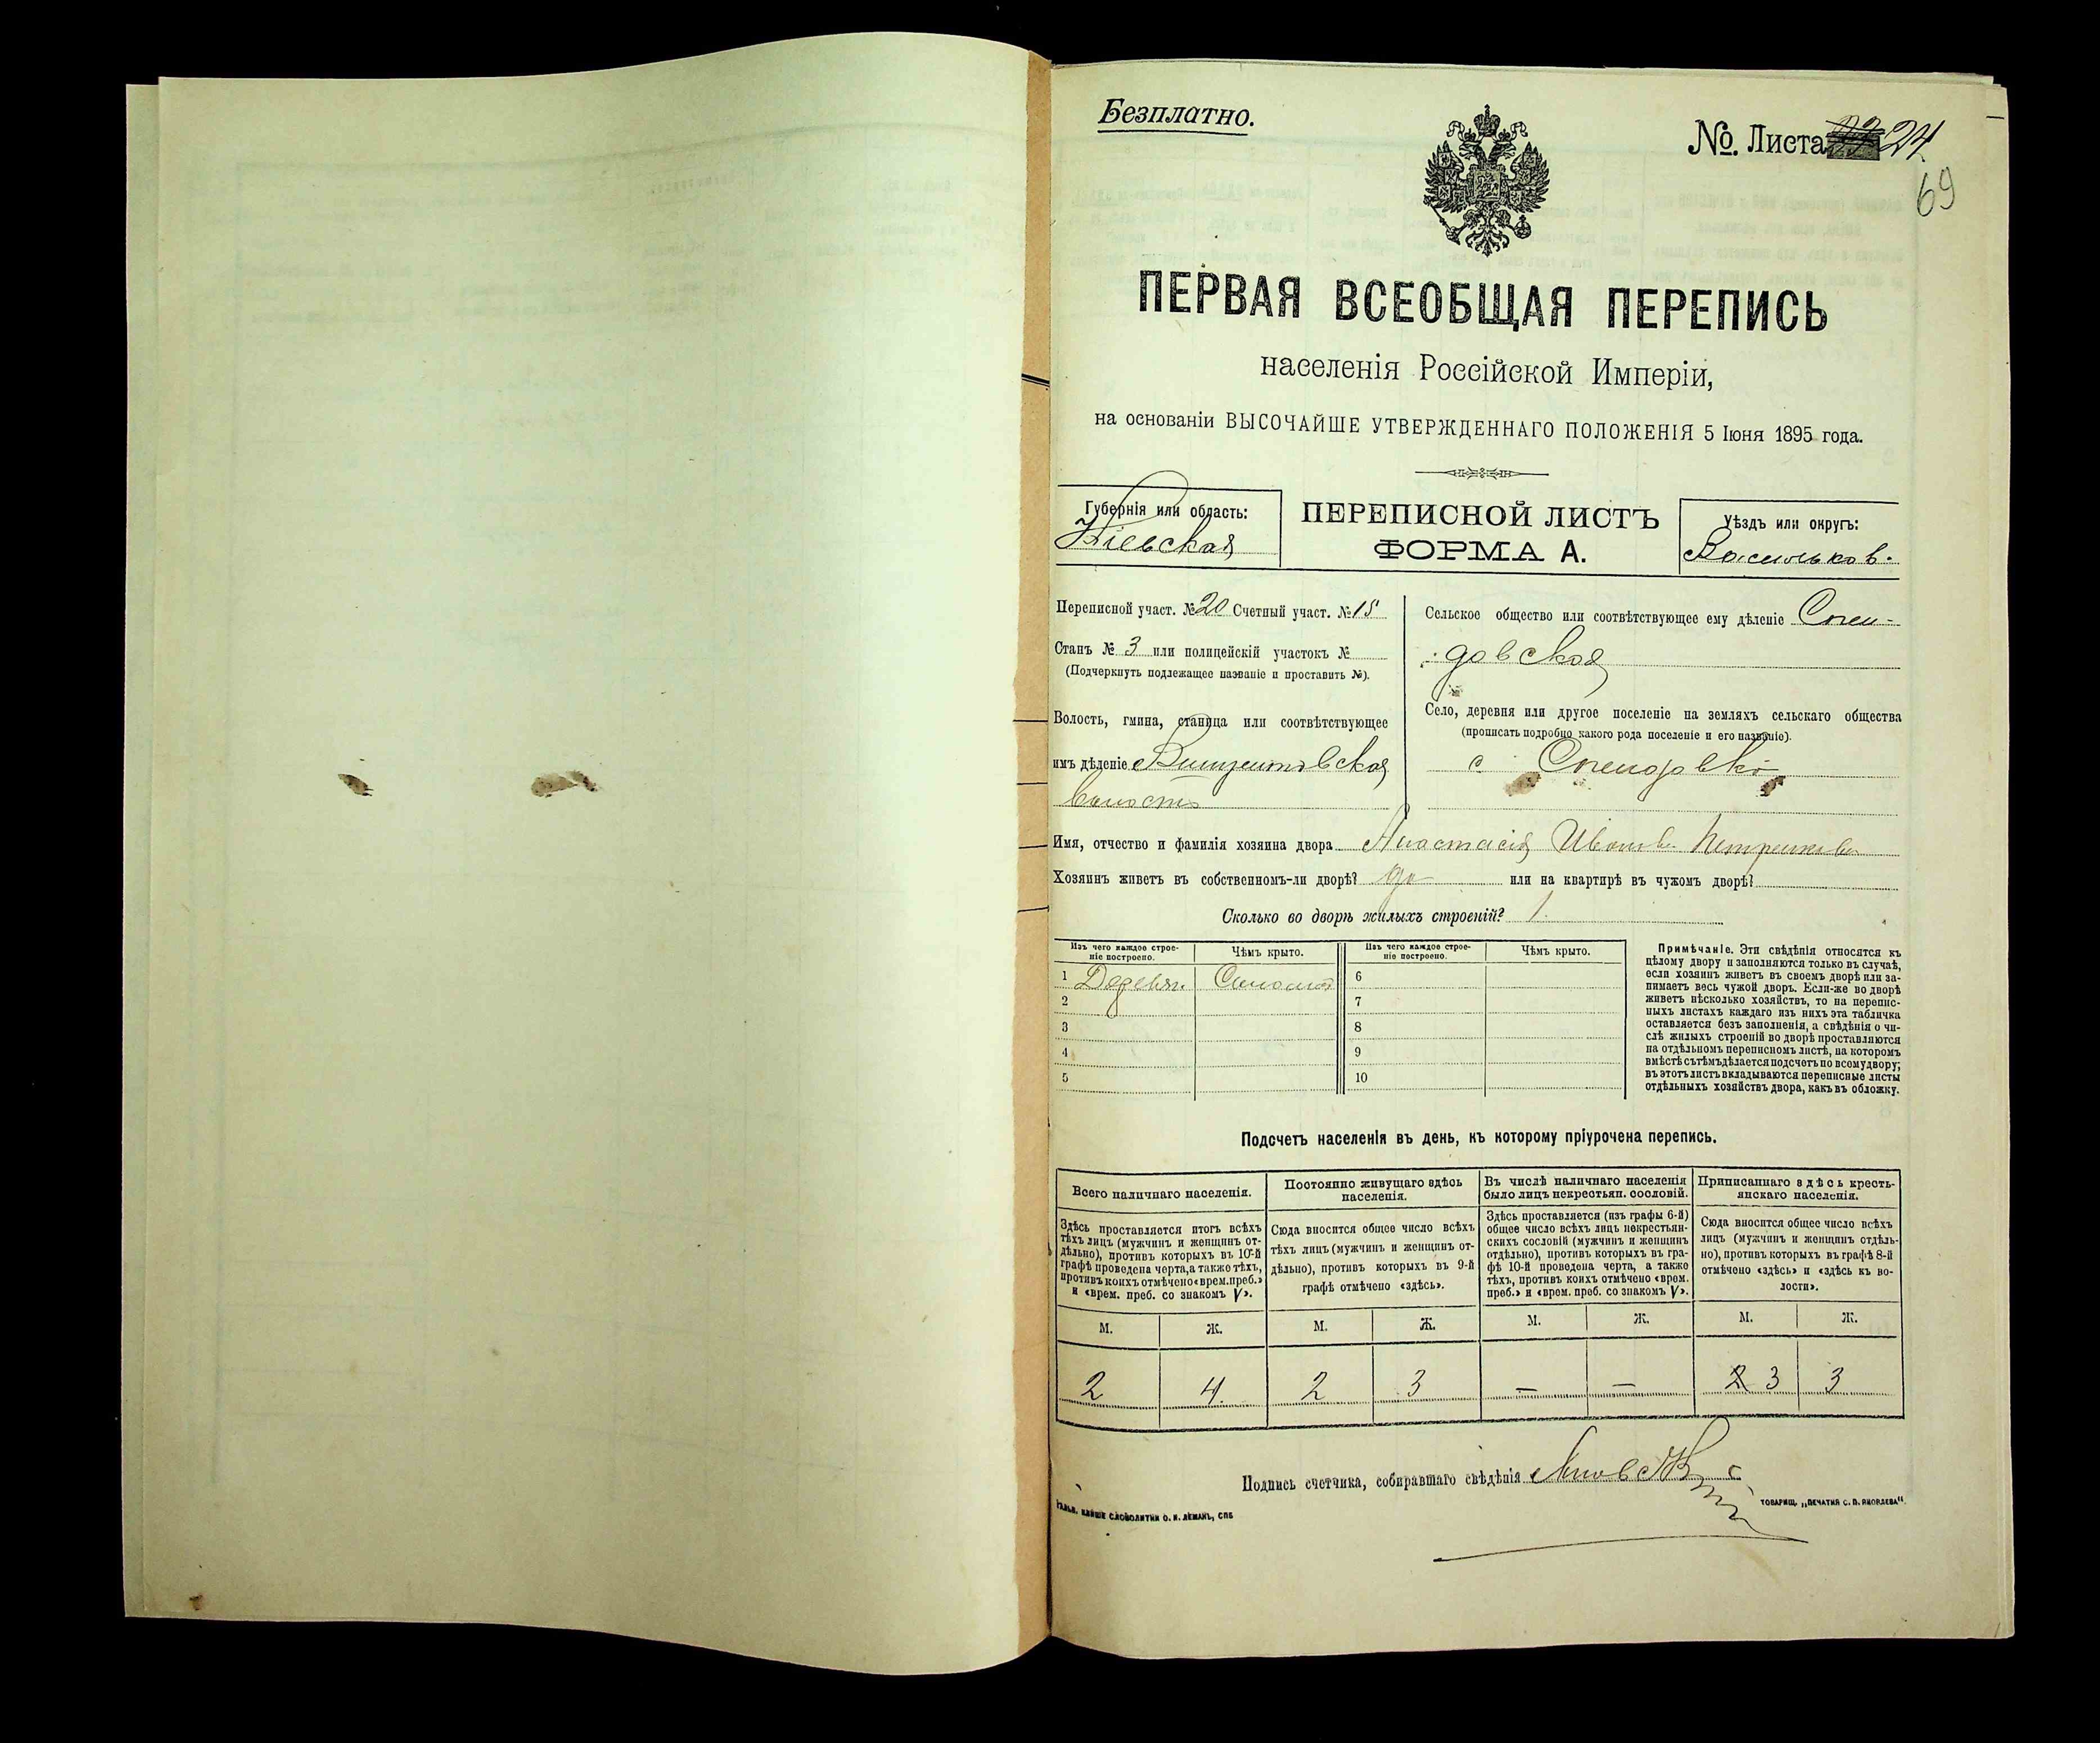 Безплатно.
№. Листа 24
69
ПЕРВАЯ ВСЕОБЩАЯ ПЕРЕПИСЬ
населенія Россійской Имперіи,
на основаніи ВЫСОЧАЙШЕ УТВЕРЖДЕННАГО ПОЛОЖЕНІЯ 5 Іюня 1895 года.
Губернія или область:
Кіевская
ПЕРЕПИСНОЙ ЛИСТЪ
ФОРМА А.
Уѣздъ или округъ:
Васильков.
Переписной участ. № 20 Счетный участ. № 15
Станъ № 3 или полицейскій участокъ №
(Подчеркнуть подлежащее названіе и проставить №).
Волость, гмина, станица или соотвѣтствующее
имъ дѣленіе Винцентовская
волость
Сельское общество или соотвѣтствующее ему дѣленіе
довская
Село, деревня или другое поселеніе на земляхъ сельскаго общества
(прописать подробно какого рода поселеніе и его названіе).
с
Имя, отчество и фамилія хозяина двора Анастасія Иванова Петренкова
Хозяинъ живетъ въ собственномъ-ли дворѣ? да или на квартирѣ въ чужомъ дворѣ?
Сколько во дворѣ жилыхъ строеній? 1
Изъ чего каждое строе-
ніе построено.
Чѣмъ крыто.
Изъ чего каждое строе-
ніе построено.
Чѣмъ крыто.
1 Деревян. Соломой 6
2 7
3 8
4 9
5 10
Примѣчаніе. Эти свѣдѣнія относятся къ
цѣлому двору и заполняются только въ случаѣ,
если хозяинъ живетъ въ своемъ дворѣ или за-
нимаетъ весь чужой дворъ. Если-же во дворѣ
живетъ нѣсколько хозяйствъ, то на перепис-
ныхъ листахъ каждаго изъ нихъ эта табличка
оставляется безъ заполненія, а свѣдѣнія о чи-
слѣ жилыхъ строеній во дворѣ проставляются
на отдѣльномъ переписномъ листѣ, на которомъ
вмѣстѣ съ тѣмъ дѣлается подсчетъ по всему двору;
въ этотъ листъ вкладываются переписные листы
отдѣльныхъ хозяйствъ двора, какъ въ обложку.
Подсчетъ населенія въ день, къ которому пріурочена перепись.
Всего наличнаго населенія.
Постоянно живущаго здѣсь
населенія.
Въ числѣ наличнаго населенія
было лицъ некрестьян. сословій.
Приписаннаго здѣсь кресть-
янскаго населенія.
Здѣсь проставляется итогъ всѣхъ
тѣхъ лицъ (мужчинъ и женщинъ от-
дѣльно), противъ которыхъ въ 10-й
графѣ проведена черта, а также тѣхъ,
противъ коихъ отмѣчено «врем. преб.»
и «врем. преб. со знакомъ V».
Сюда вносится общее число всѣхъ
тѣхъ лицъ (мужчинъ и женщинъ от-
дѣльно), противъ которыхъ въ 9-й
графѣ отмѣчено «здѣсь».
Здѣсь проставляется (изъ графы 6-й)
общее число всѣхъ лицъ некрестьян-
скихъ сословій (мужчинъ и женщинъ
отдѣльно), противъ которыхъ въ гра-
фѣ 10-й проведена черта, а также
тѣхъ, противъ коихъ отмѣчено «врем.
преб.» и «врем. преб. со знакомъ V».
Сюда вносится общее число всѣхъ
лицъ (мужчинъ и женщинъ отдѣль-
но), противъ которыхъ въ графѣ 8-й
отмѣчено «здѣсь» и «здѣсь къ во-
лости».
М. Ж. М. Ж. М. Ж. М. Ж.
2 4. 2 3 — — 2 3 3
Подпись счетчика, собиравшаго свѣдѣнія
СЛОВОЛИТНИ О. И. ЛЕМАНЪ, СПБ
ТОВАРИЩ. „ПЕЧАТНЯ С. П. ЯКОВЛЕВА“.